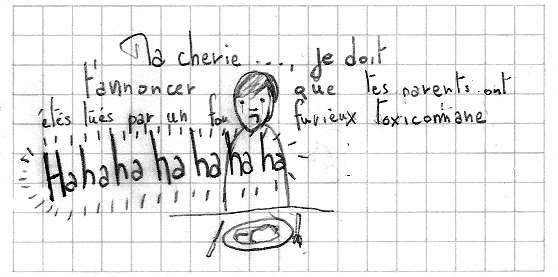 Ma cherie ...., je doit
t'annoncer que tes parents ont
étés tués par un fou furieux toxicomane
Hahahahahahaha